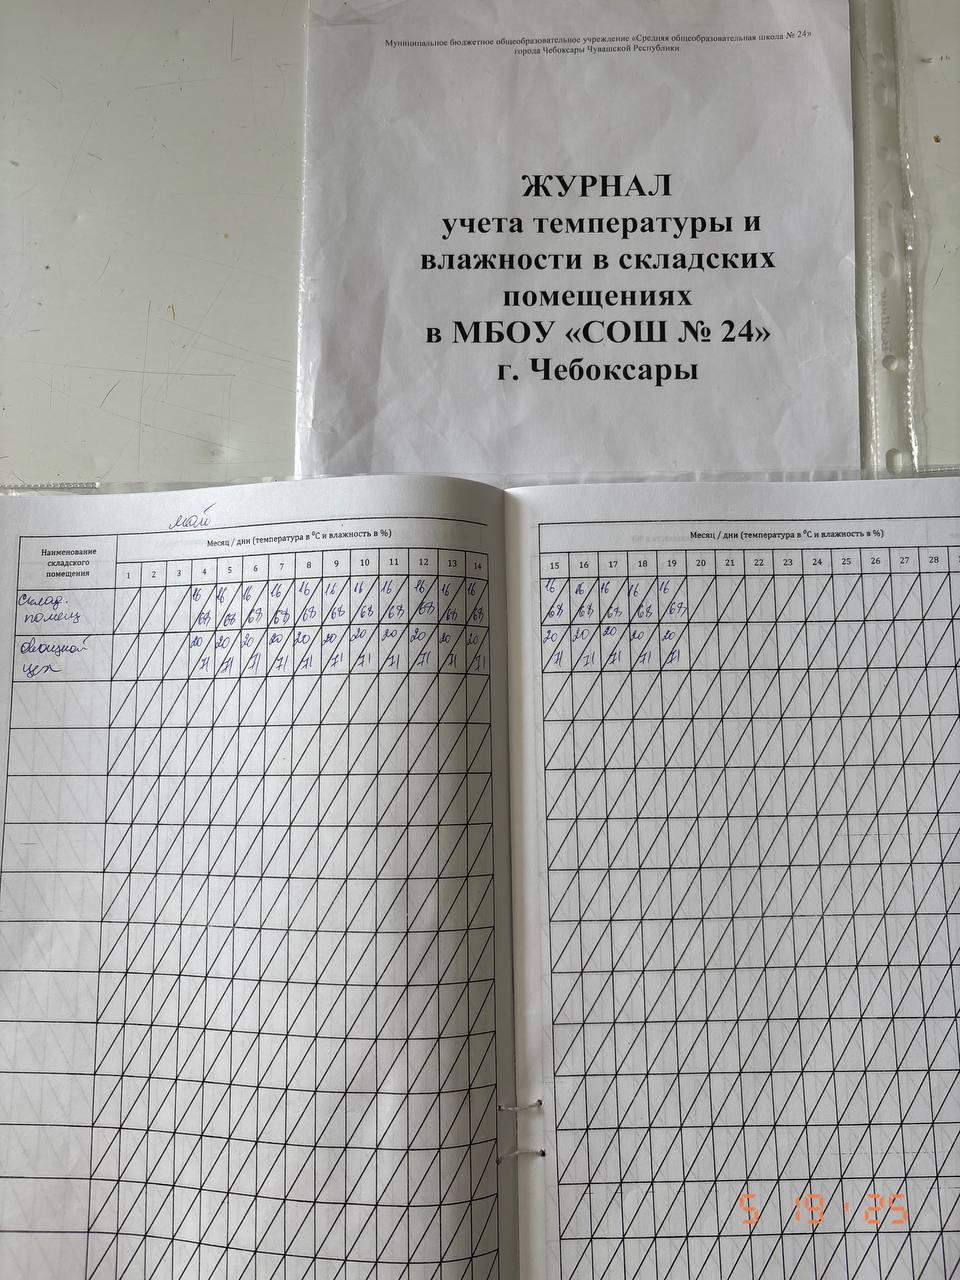 Муниципальное бюджетное общеобразовательное учреждение «Средняя общеобразовательная школа № 24»
города Чебоксары Чувашской Республики
ЖУРНАЛ
учета температуры и
влажности в складских
помещениях
в МБОУ «СОШ № 24»
г. Чебоксары
май
Наименование
складского
помещения
Месяц / дни (температура в °С и влажность в %)
1 2 3 4 5 6 7 8 9 10 11 12 13 14
Склад.
помещ
16 16 16 16 16 16 16 16 16 16 16
68 68 68 68 68 68 68 68 68 68 68
Овощной
цех
20 20 20 20 20 20 20 20 20 20 20
71 71 71 71 71 71 71 71 71 71 71
Месяц / дни (температура в °С и влажность в %)
15 16 17 18 19 20 21 22 23 24 25 26 27 28
16 16 16 16 16
68 68 68 68 68
20 20 20 20 20
71 71 71 71 71
5 19 '25